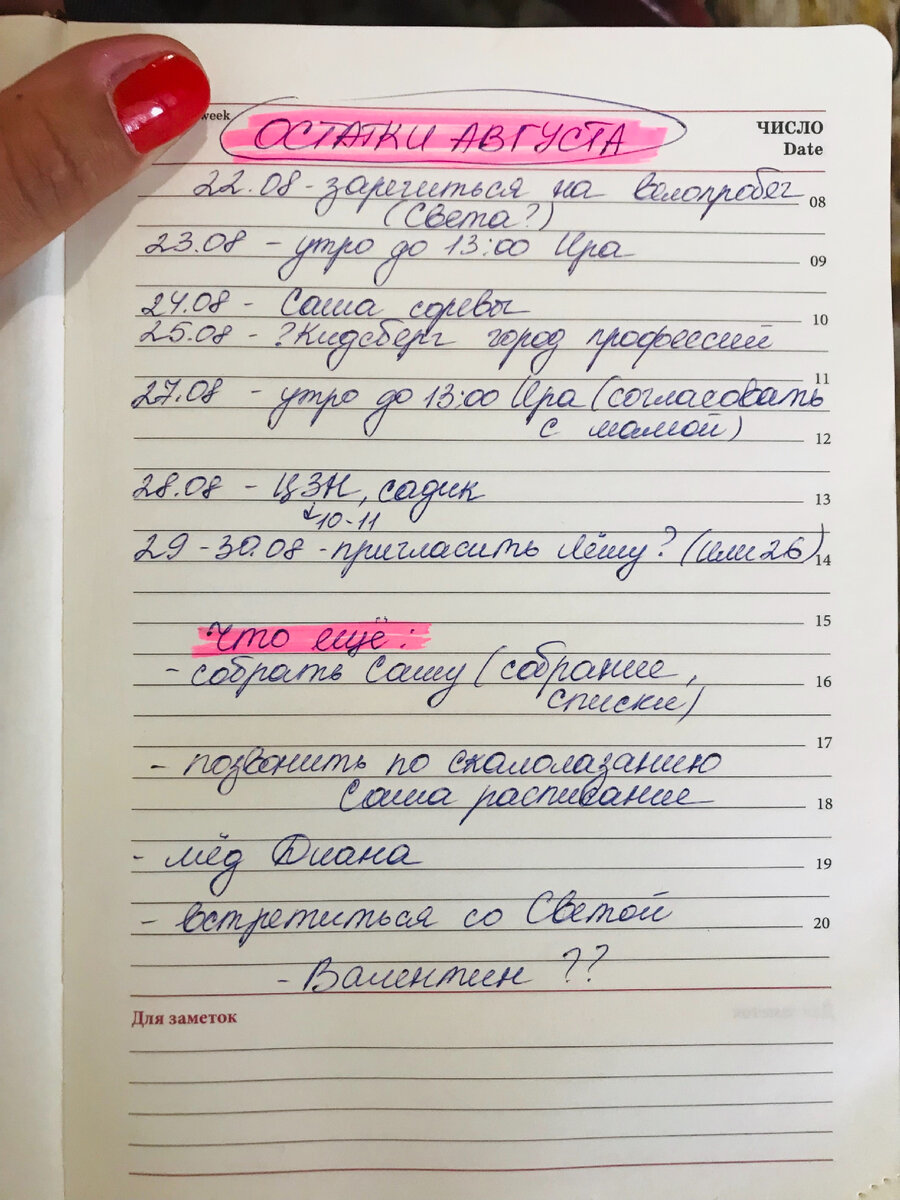 week
ОСТАТКИ АВГУСТА
ЧИСЛО
Date
22.08 - зарегиться на велопробег
08
(Света?)
23.08 - утро до 13:00 Ира
09
24.08 - Саша соревы
10
25.08 - ?Кидсберг город профессий
11
27.08 - утро до 13:00 Ира (согласовать
с мамой)
12
28.08 - ЦЗН, садик
13
↓10-11
29-30.08 - пригласить Лёшу? (или 26)
14
15
Что ещё:
- собрать Сашу (собрание,
16
списки)
17
- позвонить по скалолазанию
Саша расписание
18
- мёд Диана
19
- встретиться со Светой
20
- Валентин ??
Для заметок